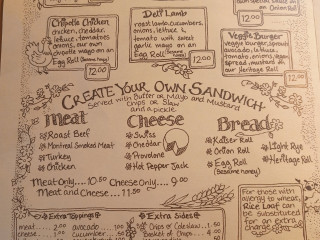 Chipotle Chicken
chicken, cheddar,
lettuce, tomatoes
onions, our own
chipotle mayo on an
Egg Roll (Sesame honey)
12.00
Deli Lamb
roast lamb, cucumbers,
onions, lettuce &
tomato with sweet
garlic mayo on an
Egg Roll (Sesame honey)
12.00
on an
Onion Roll
12.00
Veggie Burger
veggie burger, sprouts
avocado, lettuce,
tomato, onions,
spread, mustard on
our Heritage Roll
12.00
CREATE YOUR OWN SANDWICH
Served with Butter or Mayo and Mustard
Chips or Slaw
and a pickle
Meat
Roast Beef
Montreal Smoked Meat
Turkey
Chicken
Cheese
Swiss
Cheddar
Provolone
Hot Pepper Jack
Bread
Kaiser Roll
Onion Roll
Egg Roll
(Sesame honey)
Light Rye
Heritage Roll
Meat Only.... 10.50 Cheese Only.... 9.00
Meat and Cheese.... 11.50
Extra Toppings
meat 2.00 avocado 1.00
cheese cucumber .50
Extra Sides
Chips or Coleslaw 1.50
Basket of Chips 4.00
For those with
allergy to wheat,
Rice Loaf can
be substituted
for an extra
charge